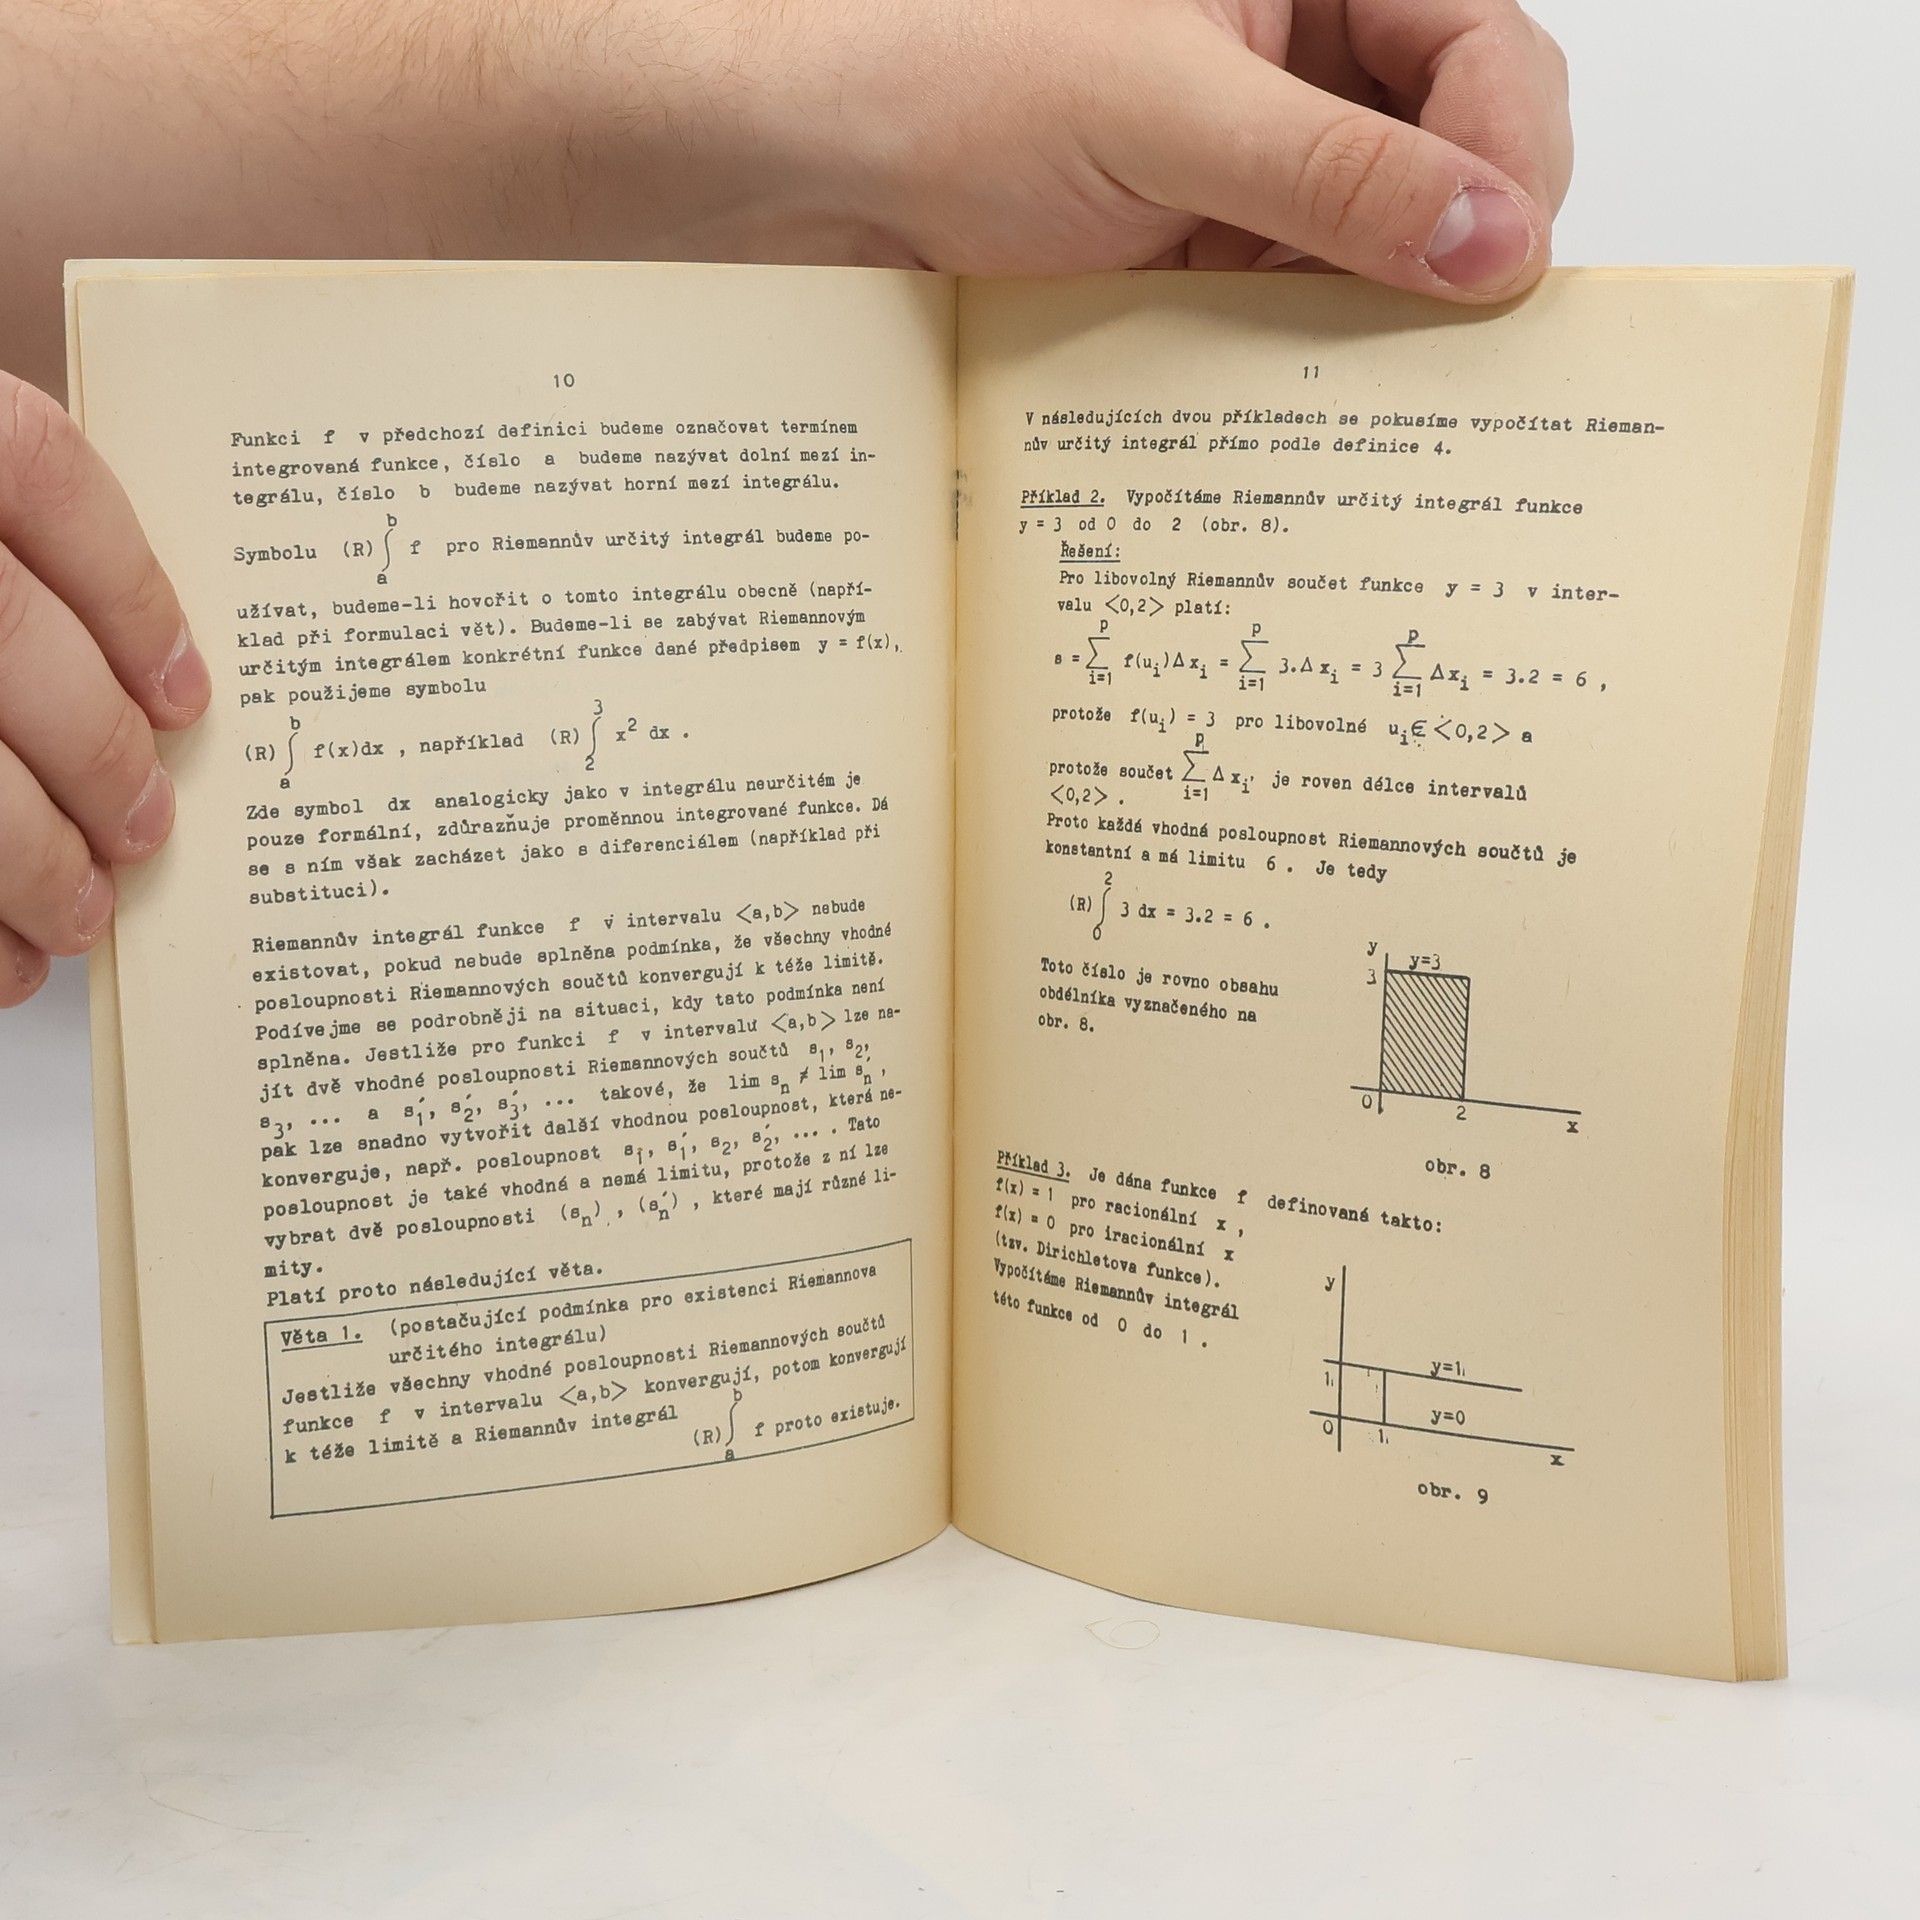 10
Funkci f v předchozí definici budeme označovat termínem
integrovaná funkce, číslo a budeme nazývat dolní mezí in-
tegrálu, číslo b budeme nazývat horní mezí integrálu.
b
Symbolu (R) ∫ f pro Riemannův určitý integrál budeme po-
a
užívat, budeme-li hovořit o tomto integrálu obecně (napří-
klad při formulaci vět). Budeme-li se zabývat Riemannovým
určitým integrálem konkrétní funkce dané předpisem y = f(x),
pak použijeme symbolu
b 3
(R) ∫ f(x)dx , například (R) ∫ x² dx .
a 2
Zde symbol dx analogicky jako v integrálu neurčitém je
pouze formální, zdůrazňuje proměnnou integrované funkce. Dá
se s ním však zacházet jako s diferenciálem (například při
substituci).
Riemannův integrál funkce f v intervalu <a,b> nebude
existovat, pokud nebude splněna podmínka, že všechny vhodné
posloupnosti Riemannových součtů konvergují k téže limitě.
Podívejme se podrobněji na situaci, kdy tato podmínka není
splněna. Jestliže pro funkci f v intervalu <a,b> lze na-
jít dvě vhodné posloupnosti Riemannových součtů s₁, s₂,
s₃, ... a s₁′, s₂′, s₃′, ... takové, že lim sₙ ≠ lim sₙ′ ,
pak lze snadno vytvořit další vhodnou posloupnost, která ne-
konverguje, např. posloupnost s₁, s₁′, s₂, s₂′, ... . Tato
posloupnost je také vhodná a nemá limitu, protože z ní lze
vybrat dvě posloupnosti (sₙ) , (sₙ′) , které mají různé li-
mity.
Platí proto následující věta.
Věta 1. (postačující podmínka pro existenci Riemannova
určitého integrálu)
Jestliže všechny vhodné posloupnosti Riemannových součtů
funkce f v intervalu <a,b> konvergují, potom konvergují
b
k téže limitě a Riemannův integrál (R) ∫ f proto existuje.
a
11
V následujících dvou příkladech se pokusíme vypočítat Rieman-
nův určitý integrál přímo podle definice 4.
Příklad 2. Vypočítáme Riemannův určitý integrál funkce
y = 3 od 0 do 2 (obr. 8).
Řešení:
Pro libovolný Riemannův součet funkce y = 3 v inter-
valu <0,2> platí:
p p p
s = ∑ f(uᵢ)Δxᵢ = ∑ 3.Δxᵢ = 3 ∑ Δxᵢ = 3.2 = 6 ,
i=1 i=1 i=1
protože f(uᵢ) = 3 pro libovolné uᵢ ∈ <0,2> a
p
protože součet ∑ Δxᵢ, je roven délce intervalů
i=1
<0,2> .
Proto každá vhodná posloupnost Riemannových součtů je
konstantní a má limitu 6 . Je tedy
2
(R) ∫ 3 dx = 3.2 = 6 .
0
Toto číslo je rovno obsahu
obdélníka vyznačeného na
obr. 8.
y
3
y=3
0
2
x
obr. 8
Příklad 3. Je dána funkce f definovaná takto:
f(x) = 1 pro racionální x ,
f(x) = 0 pro iracionální x
(tzv. Dirichletova funkce).
Vypočítáme Riemannův integrál
této funkce od 0 do 1 .
y
1
y=1
y=0
0
1
x
obr. 9